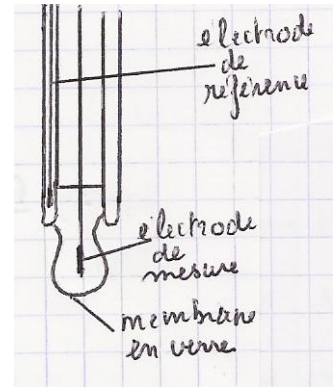 electrode
de
référence
electrode
de
mesure
membrane
en verre